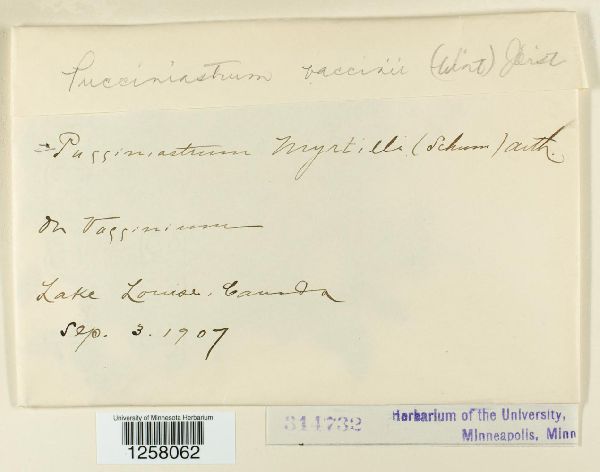 Pucciniastrum vaccinii (Wint) Jørst
= Pucciniastrum Myrtilli (Schum) Arth.
On Vaccinium
Lake Louise. Canada
Sep. 3. 1907
University of Minnesota Herbarium
1258062
314732
Herbarium of the University,
Minneapolis, Minn